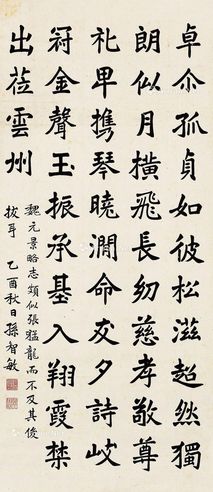 卓尒孤貞如彼松滋超然獨
朗似月橫飛長幼慈孝敬尊
礼卑携琴曉澗命友夕詩岐
冠金聲玉振承基入翔霞禁
出莅雲州
魏元景略志類似張猛龍而不及其俊
拔耳 乙酉秋日孫智敏